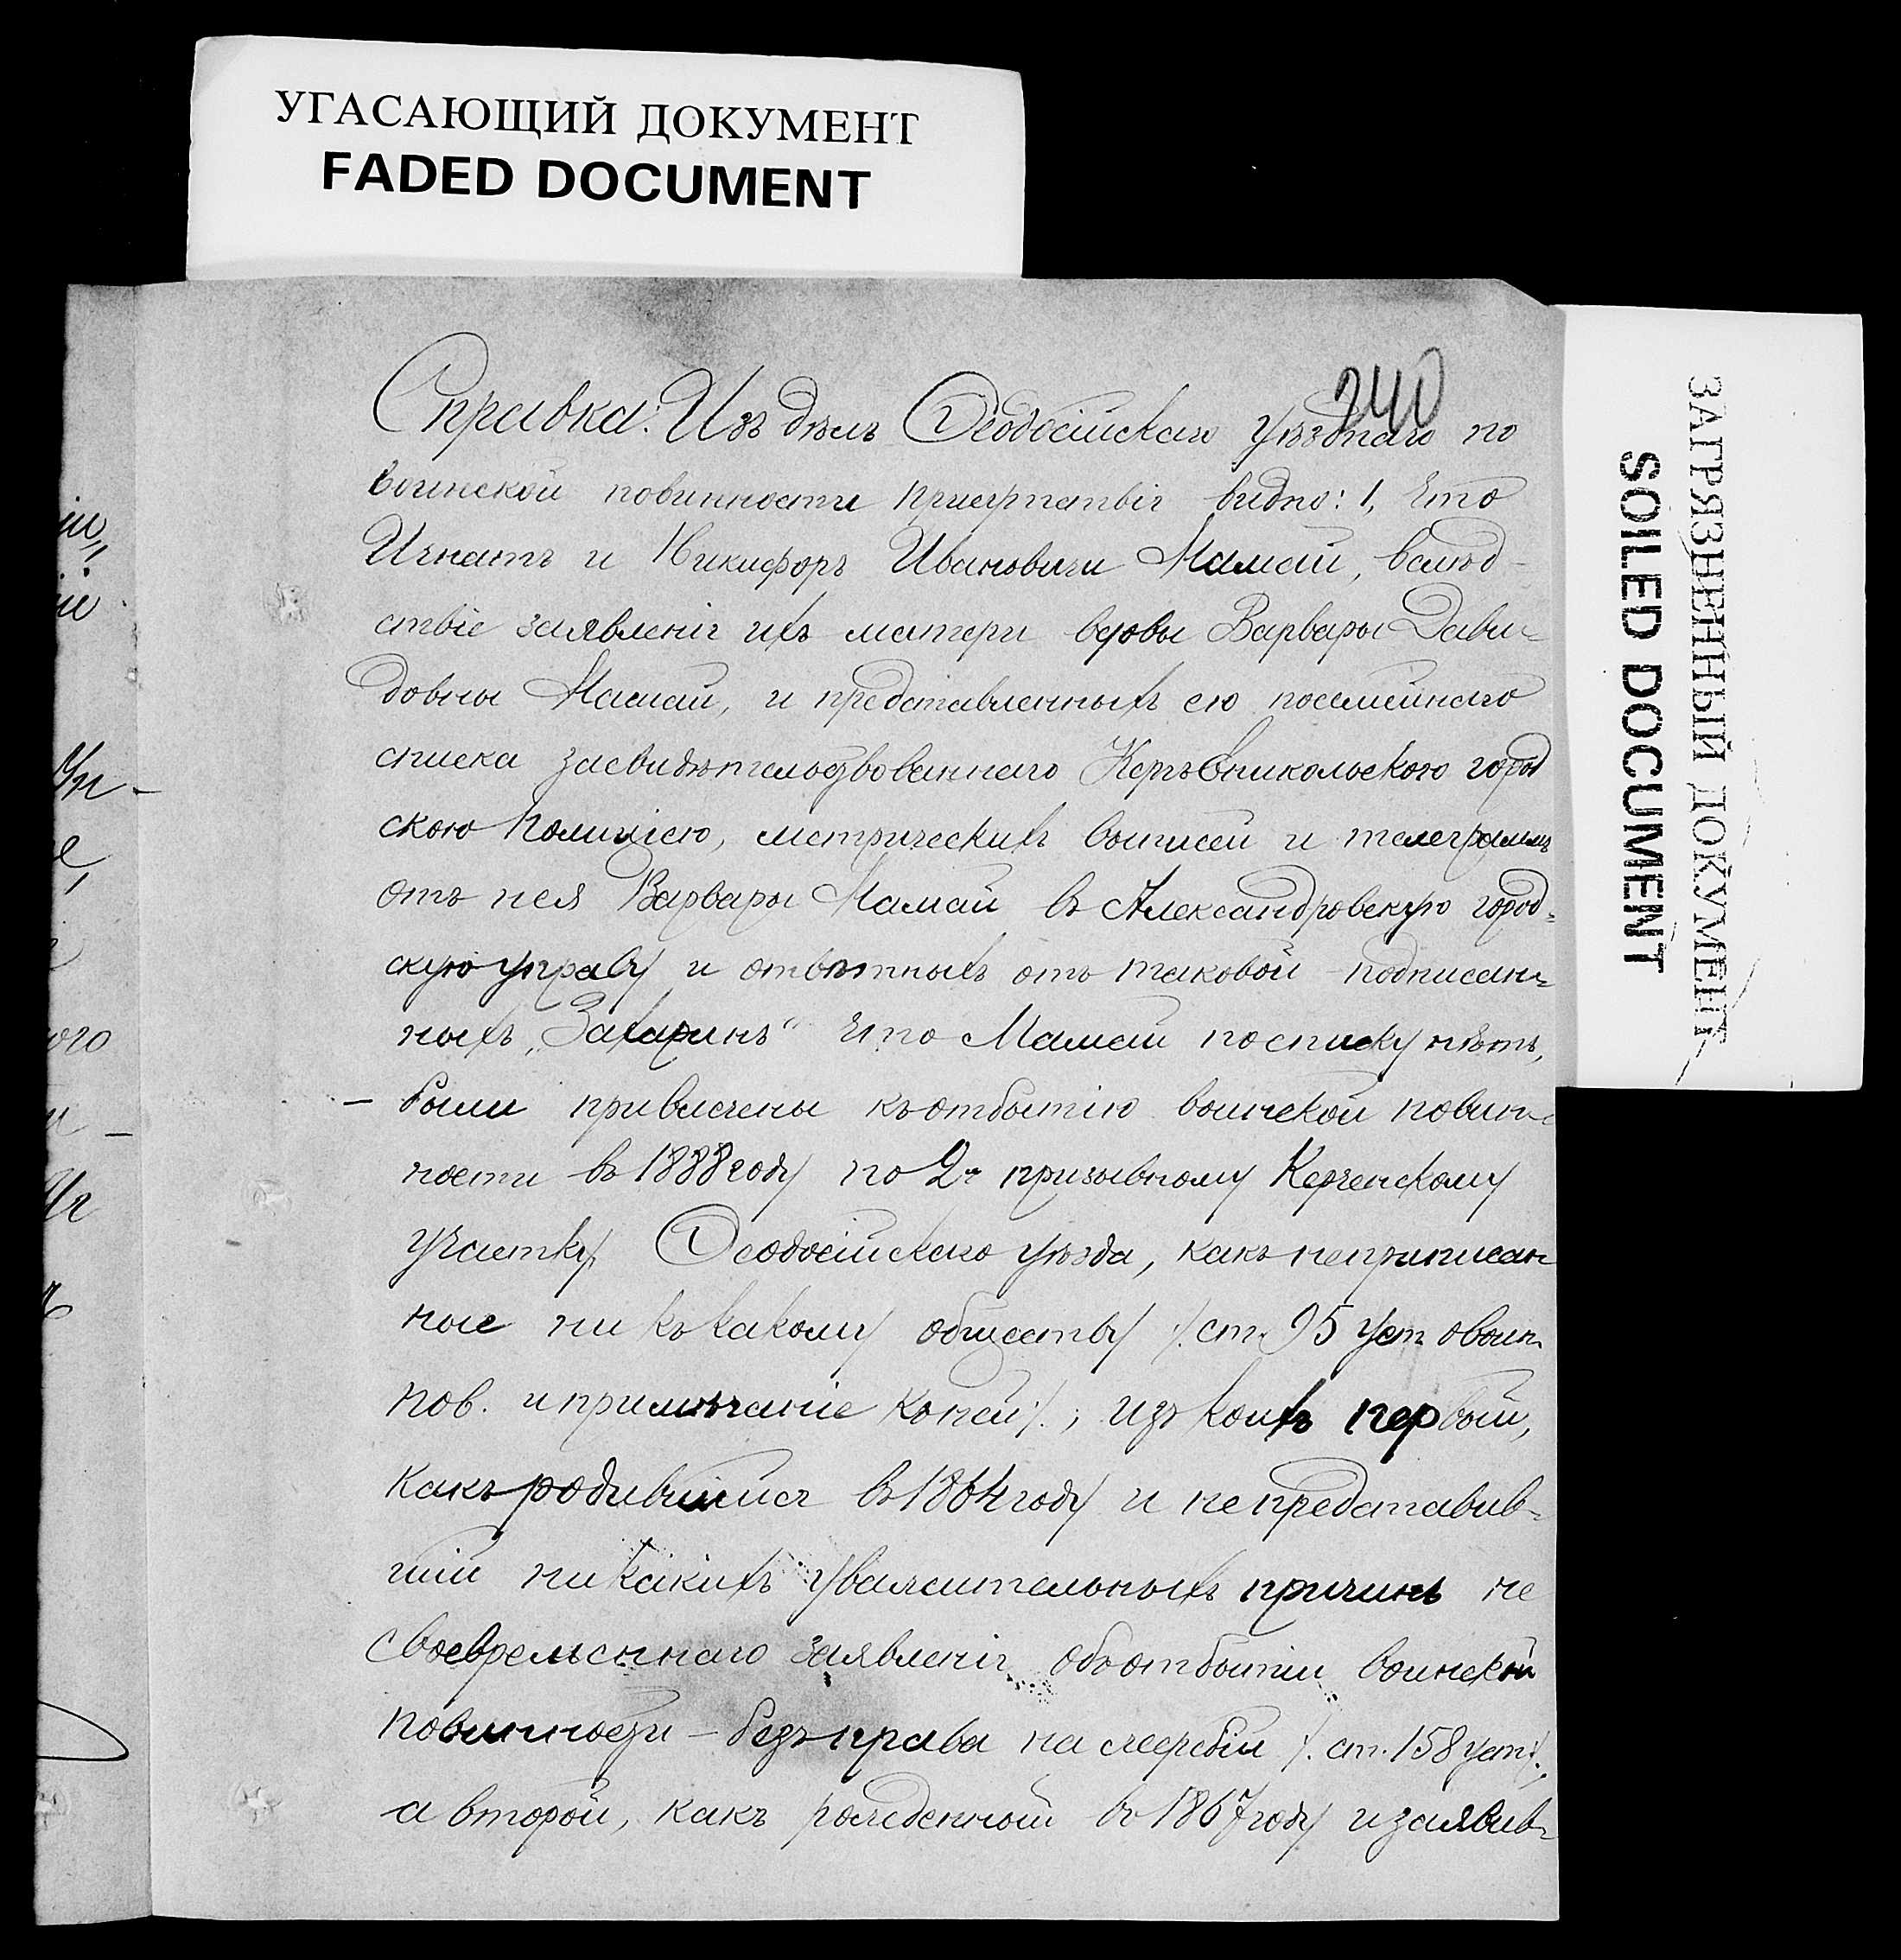 УГАСАЮЩИЙ ДОКУМЕНТ
FADED DOCUMENT
ЗАГРЯЗНЕННЫЙ ДОКУМЕНТ
SOILED DOCUMENT
240
Справка: Изъ дѣлъ Ѳеодосійскаго уѣзднаго по
воинской повинности присутствія видно: 1, что
Игнатъ и Никифоръ Ивановичи Мамай, вслѣд-
ствіе заявленія ихъ матери вдовы Варвары Дави-
довны Мамай, и представленныхъ ею посемейнаго
списка засвидѣтельствованнаго город
скою полиціею, метрическихъ выписей и телеграммъ
отъ нея Варвары Мамай въ Александровскую город-
скую управу и отвѣтныхъ отъ таковой подписан-
ныхъ „Захаринъ“ что Мамай по списку нѣтъ,
– были привлечены къ отбытію воинской повин-
ности въ 1888 году по 2му призывному Керченскому
участку Ѳеодосійскаго уѣзда, какъ неприписан
ные ни къ какому обществу /. ст. 95 уст. о воин.
пов. и примѣчаніе къ ней ./, изъ коихъ первый,
какъ родившійся въ 1864 году и не представив-
шій никакихъ уважительныхъ причинъ не
своевременнаго заявленія объ отбытіи воинской
повинности – безъ права на жеребій /. ст. 158 уст ./,
а второй, какъ рожденный въ 1867 году и заявив-